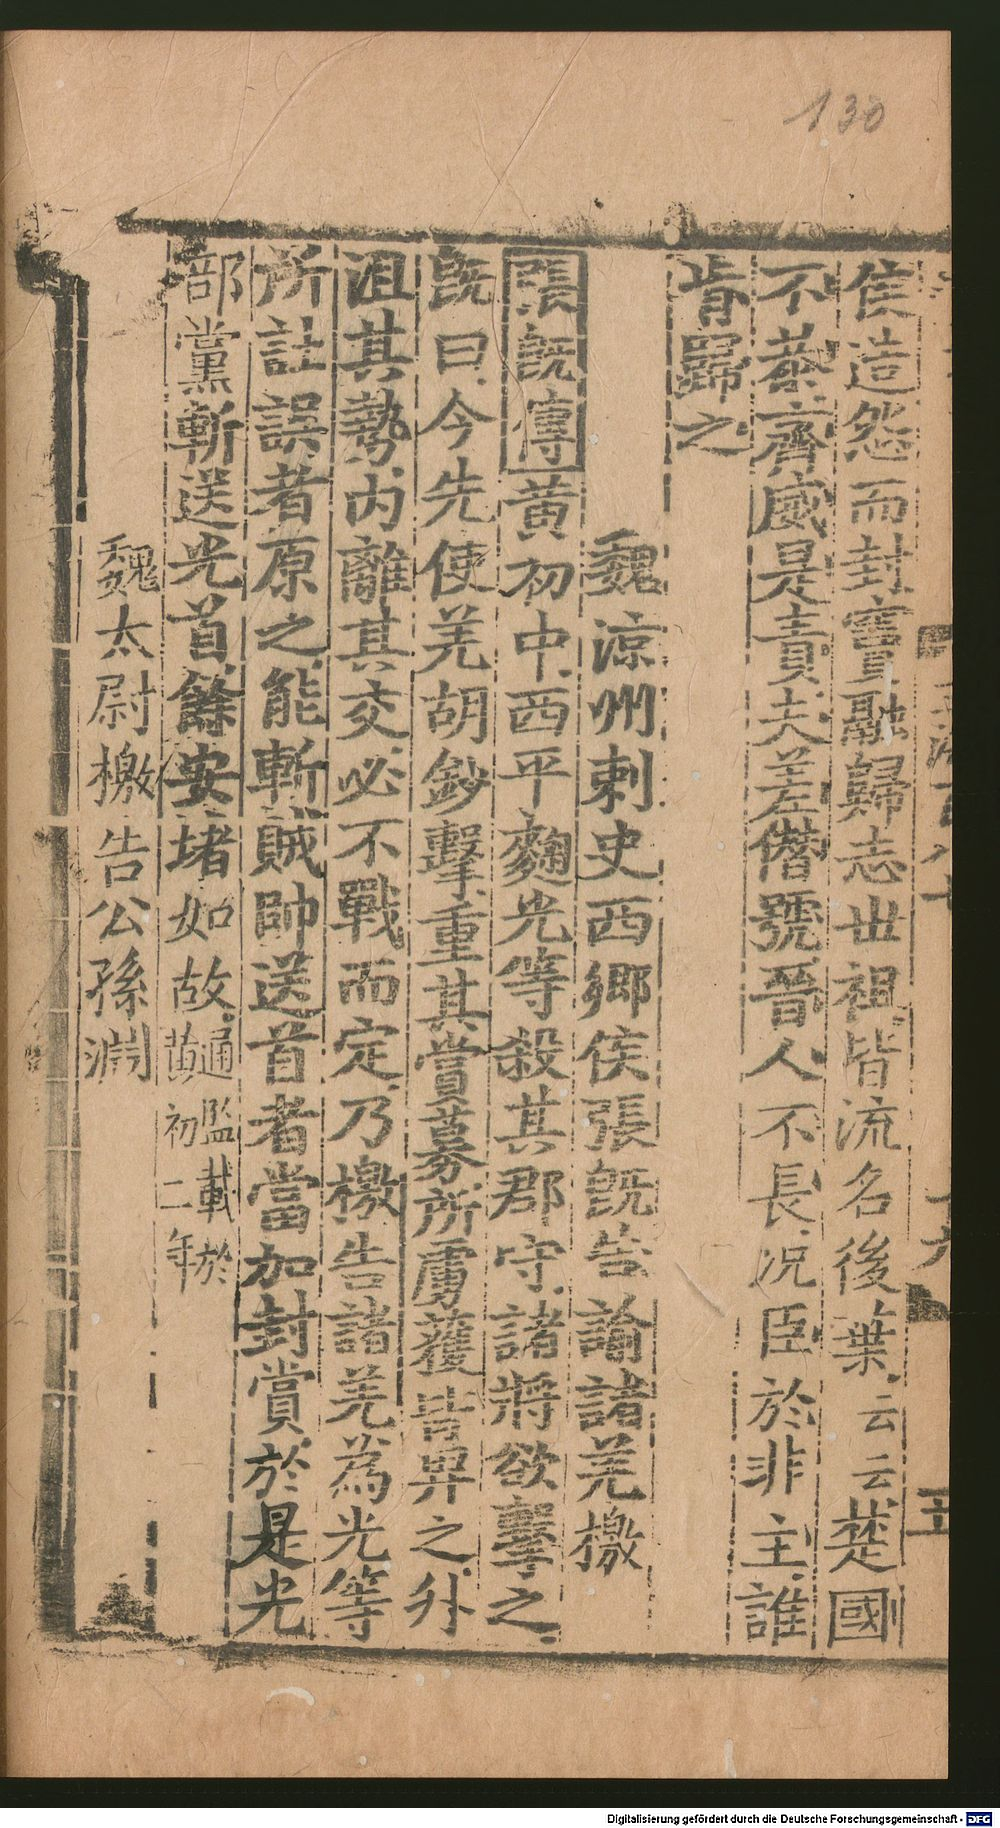 130
侯造怨而封竇融歸志世祖皆流名後葉云云楚國
不恭齊威是責夫差僭號晉人不長况臣於非主誰
肯歸之
魏涼州刺史西鄉侯張旣告諭諸羌檄
張旣傳黄初中西平麴光等殺其郡守諸將欲擊之
旣曰今先使羌胡鈔擊重其賞募所虜獲皆畀之外
沮其勢内離其交必不戰而定乃檄告諸羌為光等
所詿誤者原之能斬賊帥送首者當加封賞於是光
部黨斬送光首餘安堵如故通鑑載於黄初二年
魏太尉檄告公孫淵
Digitalisierung gefördert durch die Deutsche Forschungsgemeinschaft - DFG